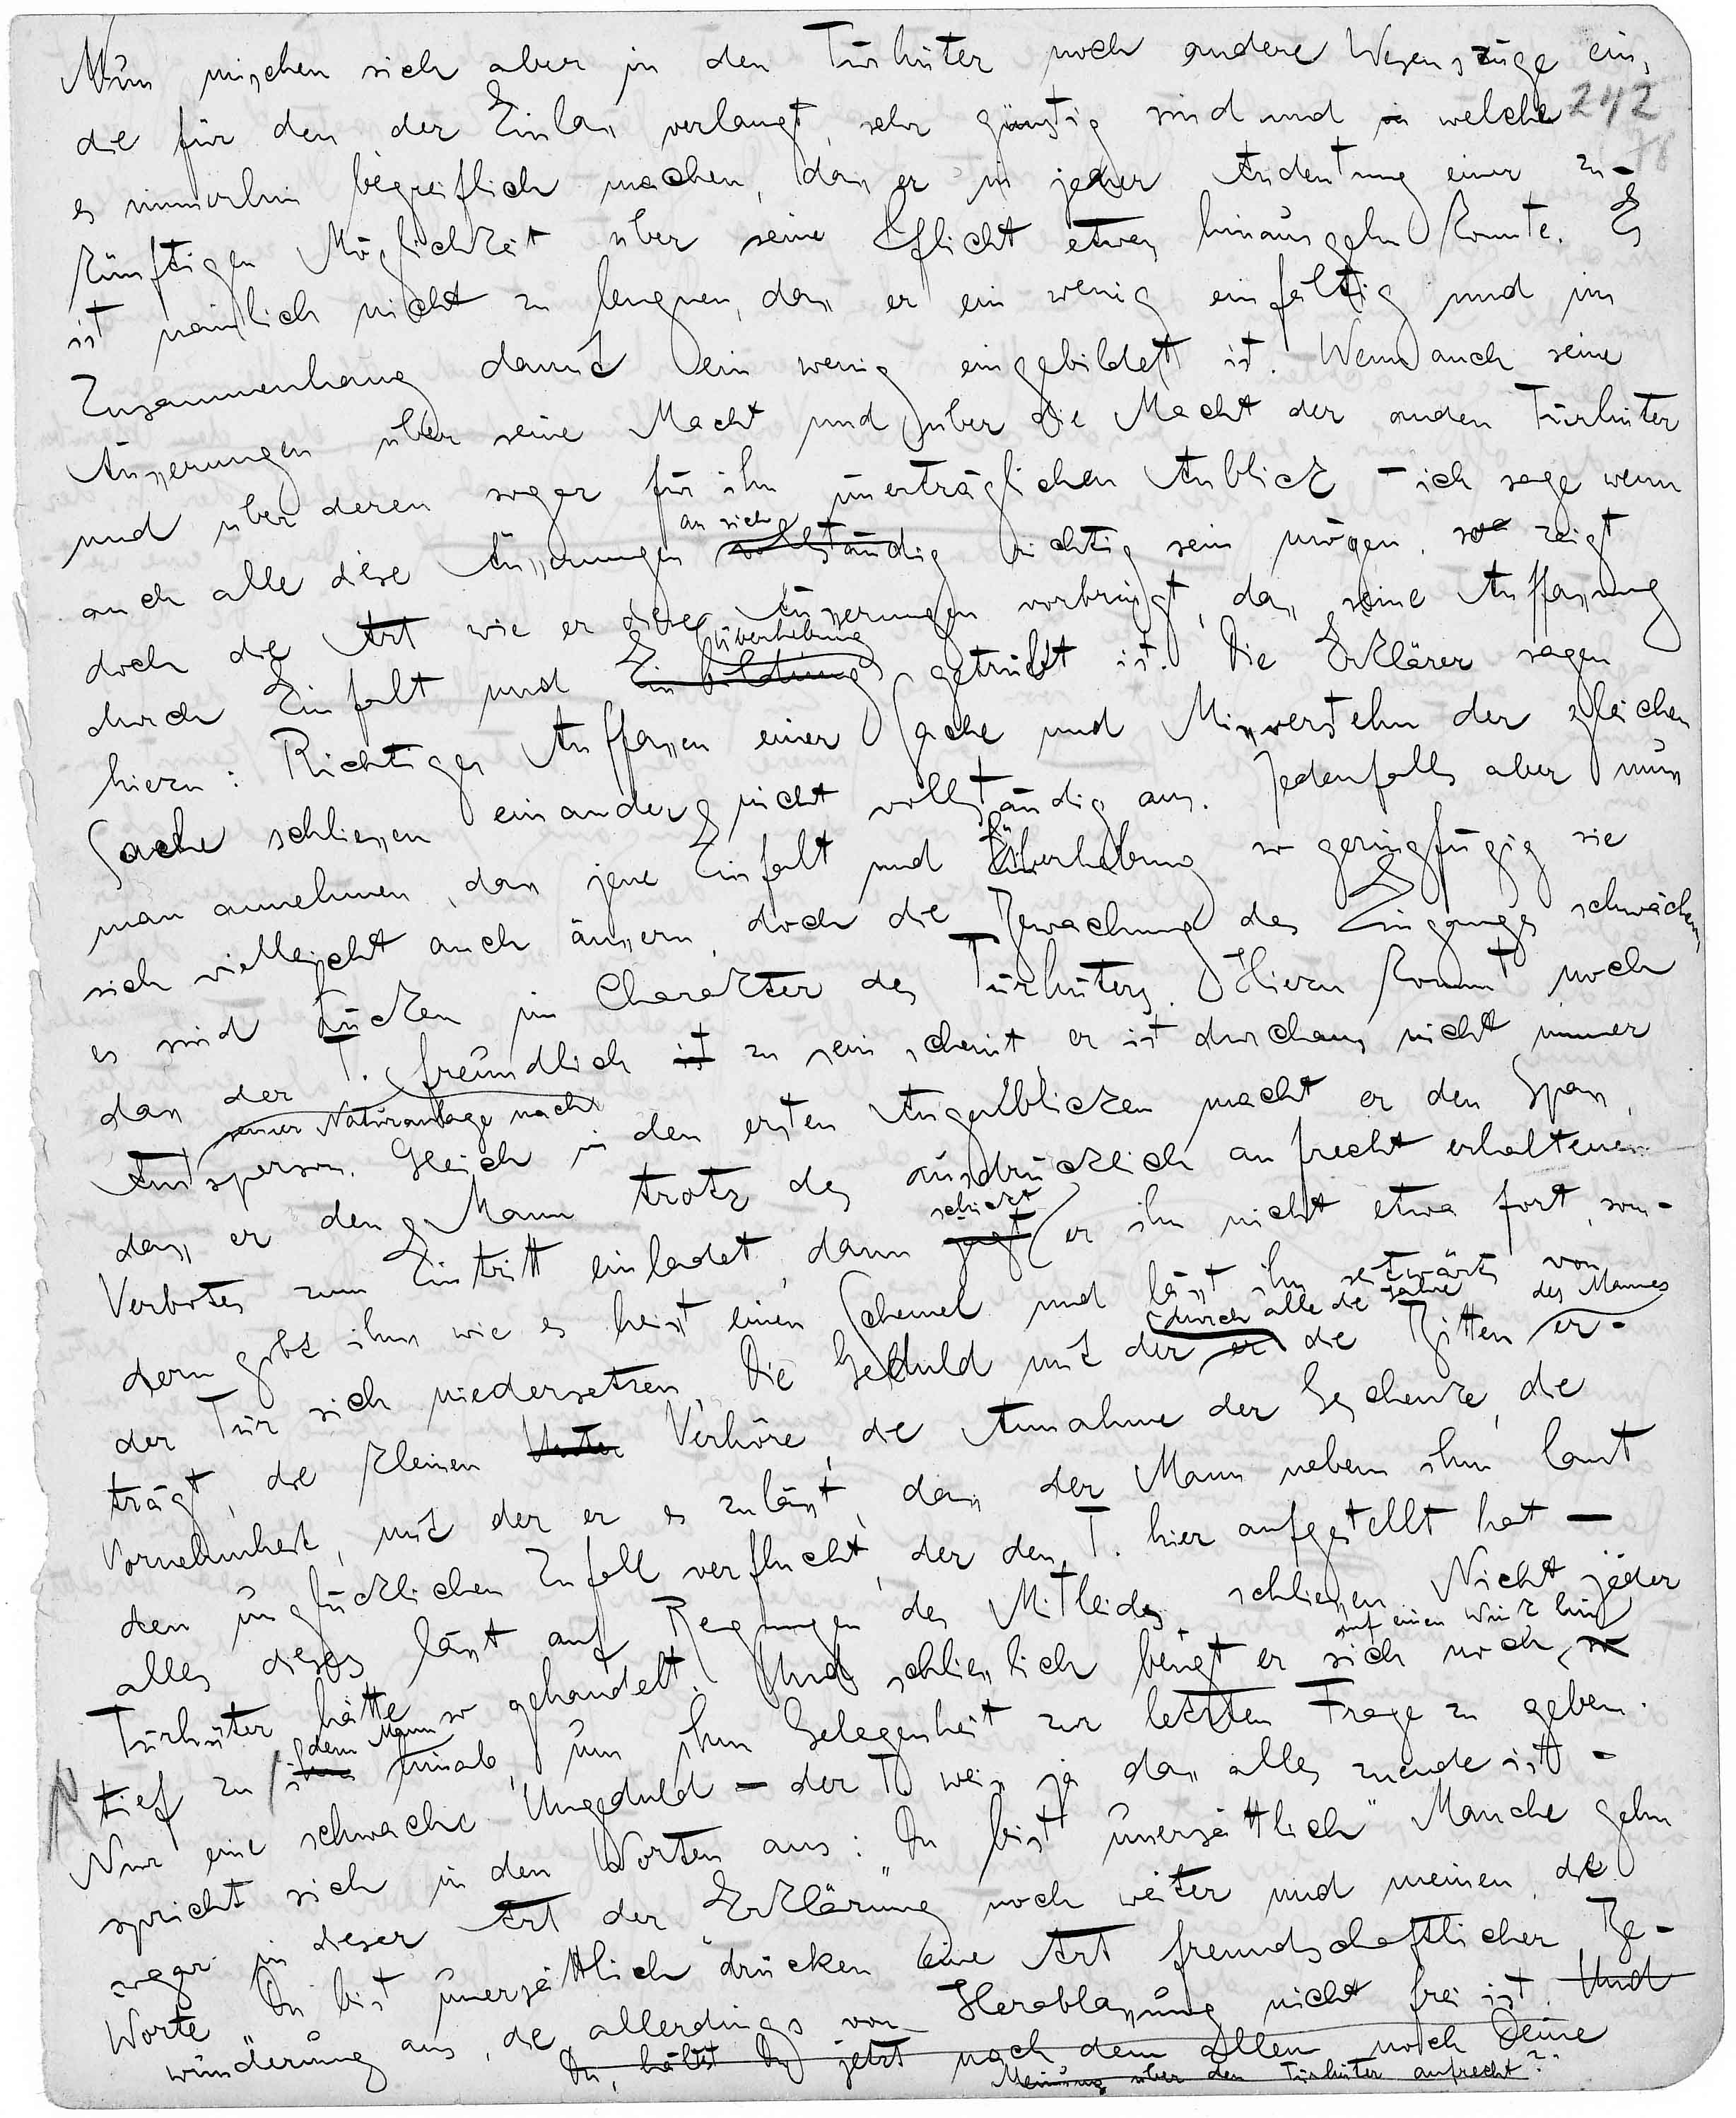 Nun mischen sich aber in den Türhüter noch andere Wesenszüge ein,
242
die für den der Einlass verlangt, sehr günstig sind und welche
78
es immerhin begreiflich machen, dass er in jener Andeutung einer zu-
künftigen Möglichkeit über seine Pflicht etwas hinausgehn konnte. Es
ist nämlich nicht zu leugnen, dass er ein wenig einfältig und im
Zusammenhang damit ein wenig eingebildet ist. Wenn auch seine
Äusserungen über seine Macht und über die Macht der anden Türhüter
und über deren sogar für ihn unerträglichen Anblick – ich sage wenn
an sich
auch alle diese Äusserungen vollständig richtig sein mögen, so zeigt
doch die Art wie er diese Äusserungen vorbringt, dass seine Auffassung
Überhebung
durch Einfalt und Einbildung getrübt ist. Die Erklärer sagen
hiezu: Richtiges Auffassen einer Sache und Missverstehn der gleichen
Sache schliessen einander nicht vollständig aus. Jedenfalls aber muss
man annehmen, dass jene Einfalt und Überhebung so geringfügig sie
sich vielleicht auch äussern, doch die Bewachung des Einganges schwächen,
es sind Lücken im Charakter des Türhüters. Hiezu kommt noch
dass der T. freundlich ist zu sein scheint er ist durchaus nicht immer
seiner Naturanlage nach
Amtsperson. Gleich in den ersten Augenblicken macht er den Spass,
dass er den Mann trotz des ausdrücklich aufrecht erhaltenen
schickt
Verbotes zum Eintritt einladet, dann jagt er ihn nicht etwa fort, son-
dern gibt ihm wie es heisst einen Schemel und lässt ihn seitwärts von
durch alle die Jahre des Mannes
der Tür sich niedersetzen. Die Geduld mit der er die Bitten er-
trägt, die kleinen Verhöre, die Annahme der Geschenke, die
Vornehmheit, mit der er es zulässt, dass der Mann neben ihm laut
den unglücklichen Zufall verflucht, der den T. hier aufgestellt hat –
alles dieses lässt auf Regungen des Mitleids schliessen. Nicht jeder
auf einen Wink hin
Türhüter hätte so gehandelt. Und schliesslich beugt er sich noch, so
dem Mann
tief zu ihm hinab, um ihm Gelegenheit zur letzten Frage zu geben.
Nur eine schwache Ungeduld – der T weiss ja dass alles zuende ist –
spricht sich in den Worten aus: Du bist unersättlich" Manche gehn
sogar in dieser Art der Erklärung noch weiter und meinen, die
Worte „Du bist unersättlich" drücken eine Art freundschaftlicher Be-
wunderung aus, die allerdings von Herablassung nicht frei ist. Und
Du, hältst Du jetzt nach dem allen noch Deine
Meinung über den Türhüter aufrecht?"